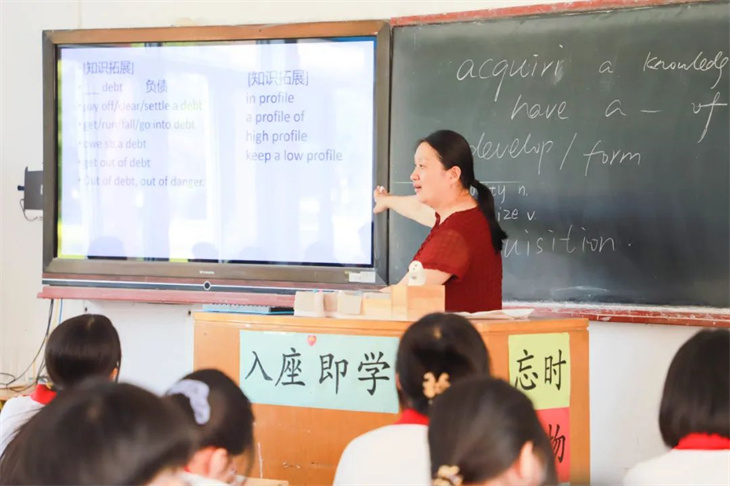 [知识拓展]
debt 负债
pay off/clear/settle a debt
get/run/fall/go into debt.
owe sb a debt
get out of debt
Out of debt, out of danger.
[知识拓展]
in profile
a profile of
high profile
keep a low profile
acquiri a knowledge
have a — of
develop / form
ty n.
ize v.
quisition.
入座即学
忘时
物